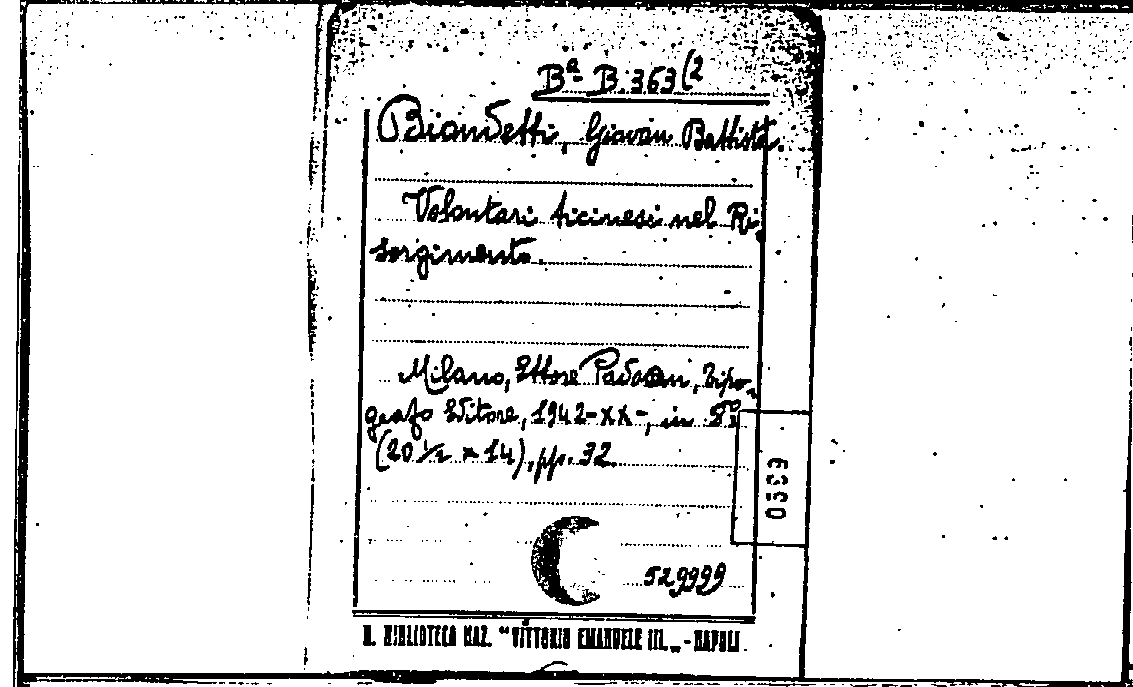 Bª B. 363 (2
Biandetti, Giovan Battista.
Volontari ticinesi nel Ri
sorgimento.
Milano, Ettore Padoan, Tipo-
grafo Editore, 1942-XX-, in 8º
(20 ½ × 14), pp. 32.
0539
529999
R. BIBLIOTECA NAZ. "VITTORIO EMANUELE III." - NAPOLI